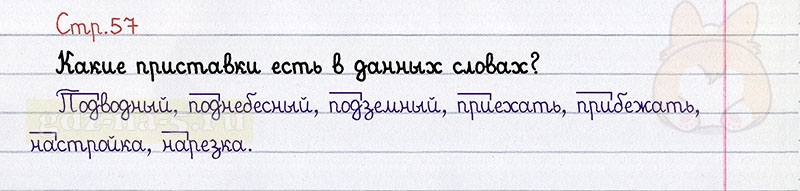 Стр.57
Какие приставки есть в данных словах?
Подводный, поднебесный, подземный, приехать, прибежать,
настройка, нарезка.